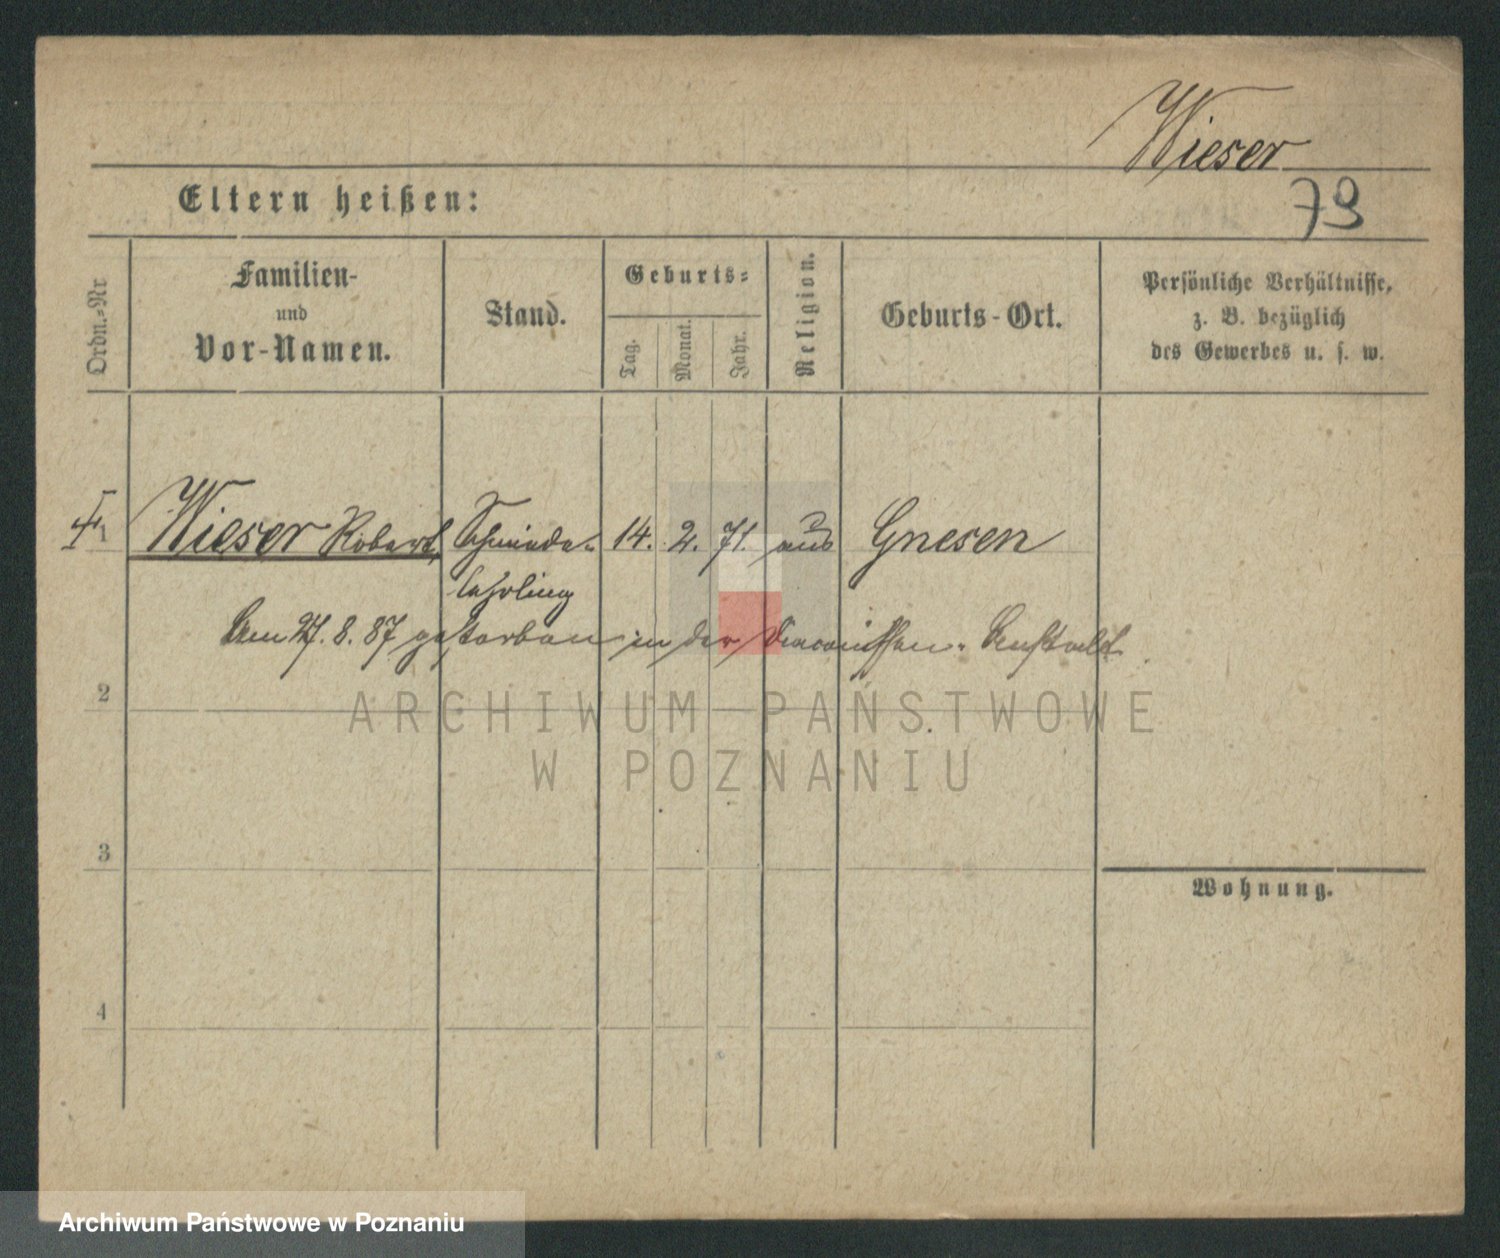 Wieser
79
Eltern heißen:
Ordn.-Nr
Familien-
und
Vor-Namen.
Stand.
Geburts-
Tag.
Monat.
Jahr.
Religion.
Geburts-Ort.
Persönliche Verhältnisse,
z. B. bezüglich
des Gewerbes u. s. w.
1 Wieser Robert, Schmiede- 14. 2. 71. aus Gnesen
lehrling
Am 27. 8. 87 gestorben in der Diaconissen-Anstalt
2
ARCHIWUM PAŃSTWOWE
W POZNANIU
3
Wohnung.
4
Archiwum Państwowe w Poznaniu